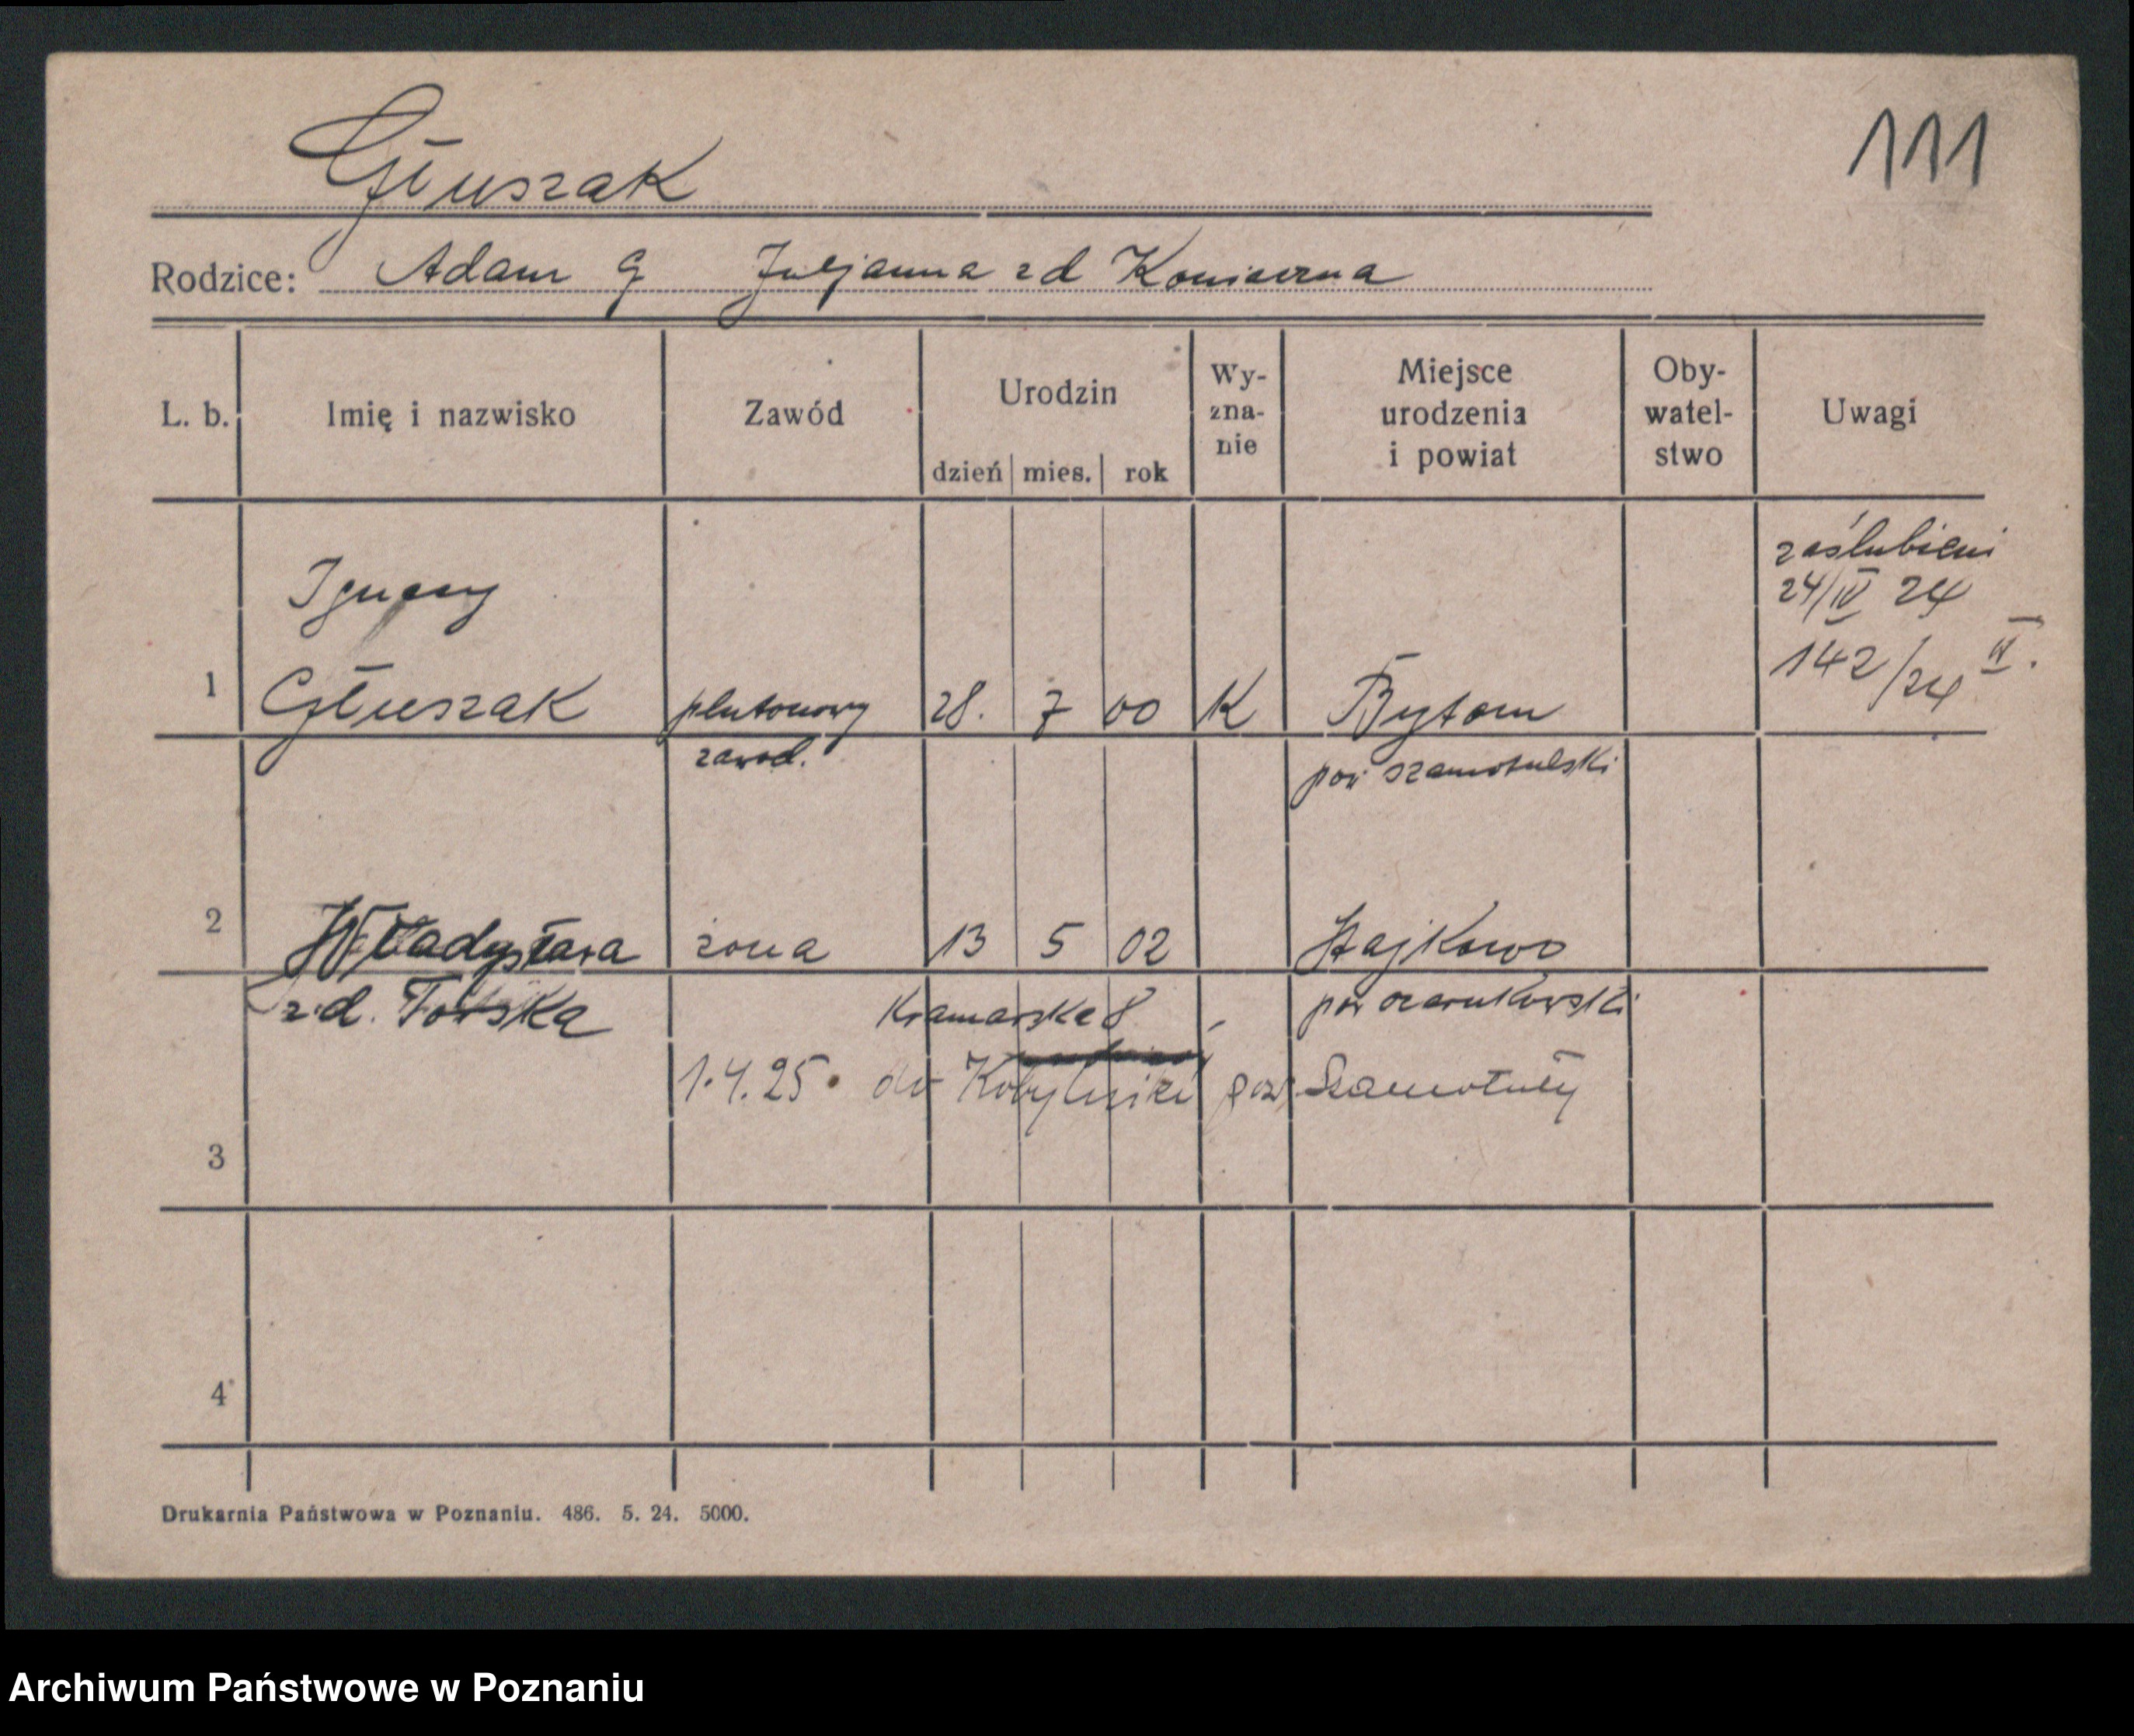 111
Głuszak
Rodzice: Adam G Juljanna zd Konieczna
L. b. Imię i nazwisko Zawód Urodzin dzień mies. rok Wy-zna-nie Miejsce urodzenia i powiat Oby-watel-stwo Uwagi
zaślubieni
24/IV 24
142/24 II.
Ignacy
1 Głuszak plutonowy 28. 7 00 K Bytom
zawod. pow szamotulski
2 Władysława żona 13 5 02 Stajkowo
zd. Kramarska 8 pow czarnkowski
1.4.25. do Kobylniki pow Szamotuły
3
4
Drukarnia Państwowa w Poznaniu. 486. 5. 24. 5000.
Archiwum Państwowe w Poznaniu